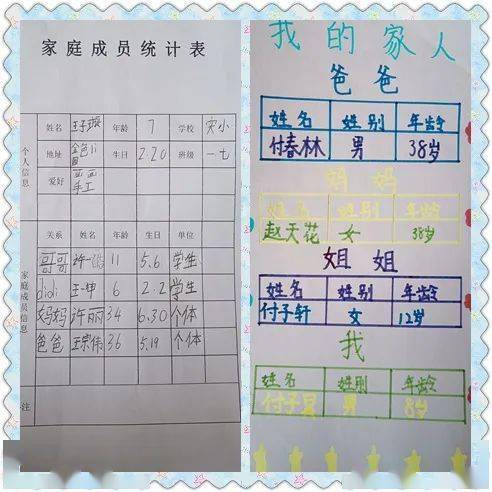 家庭成员统计表
个人信息
姓名 王子璇 年龄 7 学校 实小
地址 生日 2.20 班级 一七
爱好 画画 手工
家庭成员信息
关系 姓名 年龄 生日 单位
哥哥 许一皓 11 5.6 学生
didi 王一坤 6 2.2 学生
妈妈 许丽 34 6.30 个体
爸爸 王宗伟 36 5.19 个体
注
我的家人
爸爸
姓名 姓别 年龄
付春林 男 38岁
妈妈
姓名 姓别 年龄
赵天花 女 38岁
姐姐
姓名 姓别 年龄
付子轩 女 12岁
我
姓名 姓别 年龄
付子 男 8岁